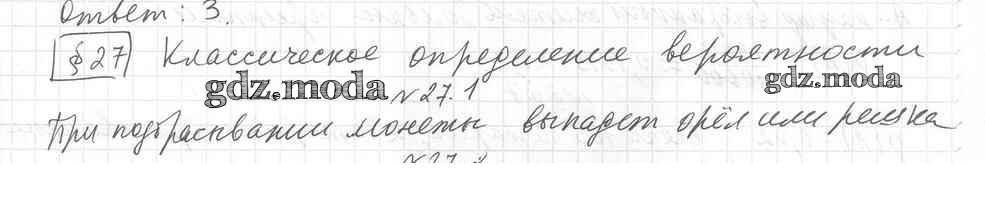 Ответ: 3.
§ 27 Классическое определение вероятности
gdz.moda gdz.moda
№27.1
При подбрасывании монеты выпадет орёл или решка